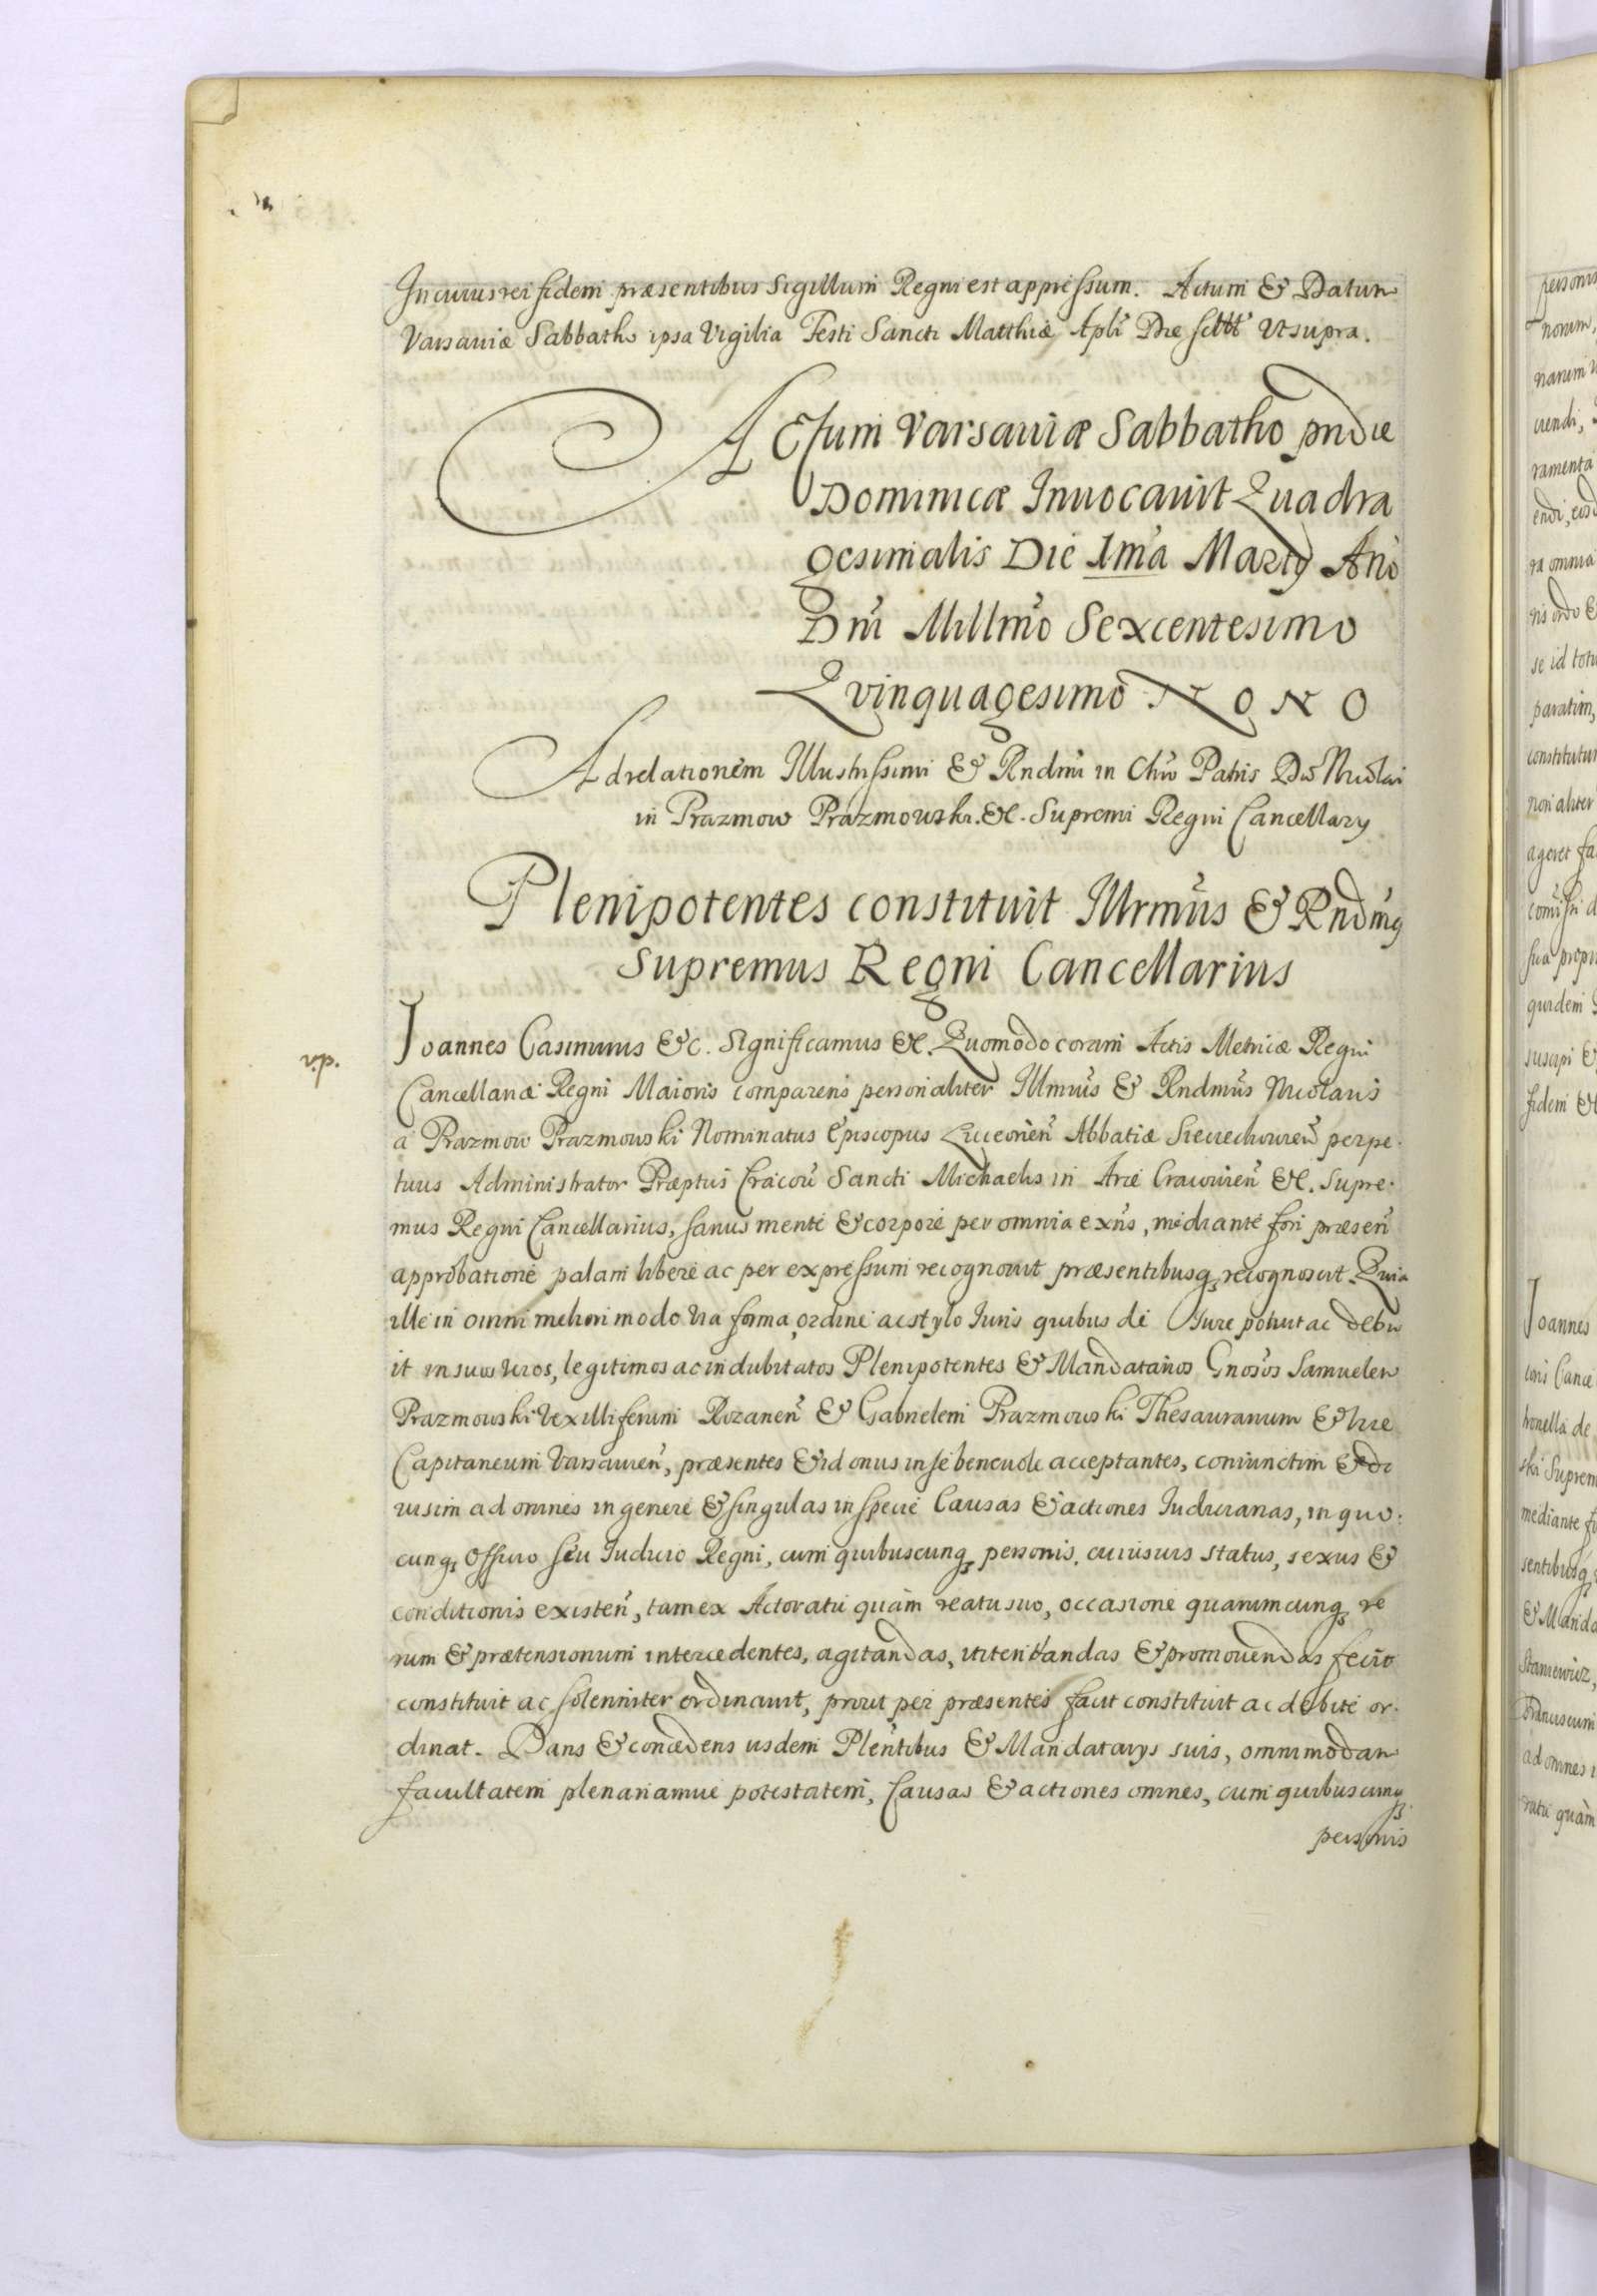 In cuius rei fidem præsentibus Sigillum Regni est appressum. Actum & Datum
Varsaviæ Sabbatho ipsa Vigilia Festi Sancti Matthiæ Apli Die ut supra.
Actum Varsaviæ Sabbatho pridie
Dominicæ Invocavit Quadra
gesimalis Die 1ma Martÿ Año
Dñi Millmo Sexcentesimo
Qvinquagesimo NONO
Ad relationem Illustrissimi & Rndmi in Chro Patris Dñi Nicolai
in Prazmow Prazmowski. &c. Supremi Regni Cancellarÿ
Plenipotentes constituit Illrmus & Rndmus
Supremus Regni Cancellarius
v.p.
Joannes Casimirus &c. Significamus &c. Quomodo coram Actis Metricæ Regni
Cancellariæ Regni Maioris comparens personaliter Illmus & Rndmus Nicolaus
à Prazmow Prazmowski Nominatus Episcopus Luceorien Abbatiæ Sieciechovien perpe-
tuus Administrator Præptus Cracov Sancti Michaelis in Arce Cracovien &c. Supre-
mus Regni Cancellarius, sanus mente & corpore per omnia exns, mediante fori præsen
approbatione palam libere ac per expressum recognovit præsentibusq recognoscit. Quia
ille in omni meliori modo via forma, ordine ac stylo Iuris quibus de Iure potuit ac debu
it in suos veros, legitimos ac indubitatos Plenipotentes & Mandatarios Gnosos Samuelem
Prazmowski Vexilliferum Rozanen & Gabrielem Prazmowski Thesaurarium & vice
Capitaneum Varsavien, præsentes & id onus in se benevole acceptantes, coniunctim & di
visim ad omnes in genere & singulas in specie Causas & actiones Iudiciarias, in quo-
cunq Officio seu Iudicio Regni, cum quibuscunq personis, cuiusvis status, sexus &
conditionis existen, tam ex Actoratu quàm reatu suo, occasione quarumcunq re
rum & prætensionum intercedentes, agitandas, intentandas & promovendas fecit
constituit ac solenniter ordinavit, prout per præsentes facit constituit ac debite or-
dinat. Dans & concedens iisdem Plentibus & Mandatarÿs suis, omnimodam
facultatem plenariamve potestatem, Causas & actiones omnes, cum quibuscunq
personis